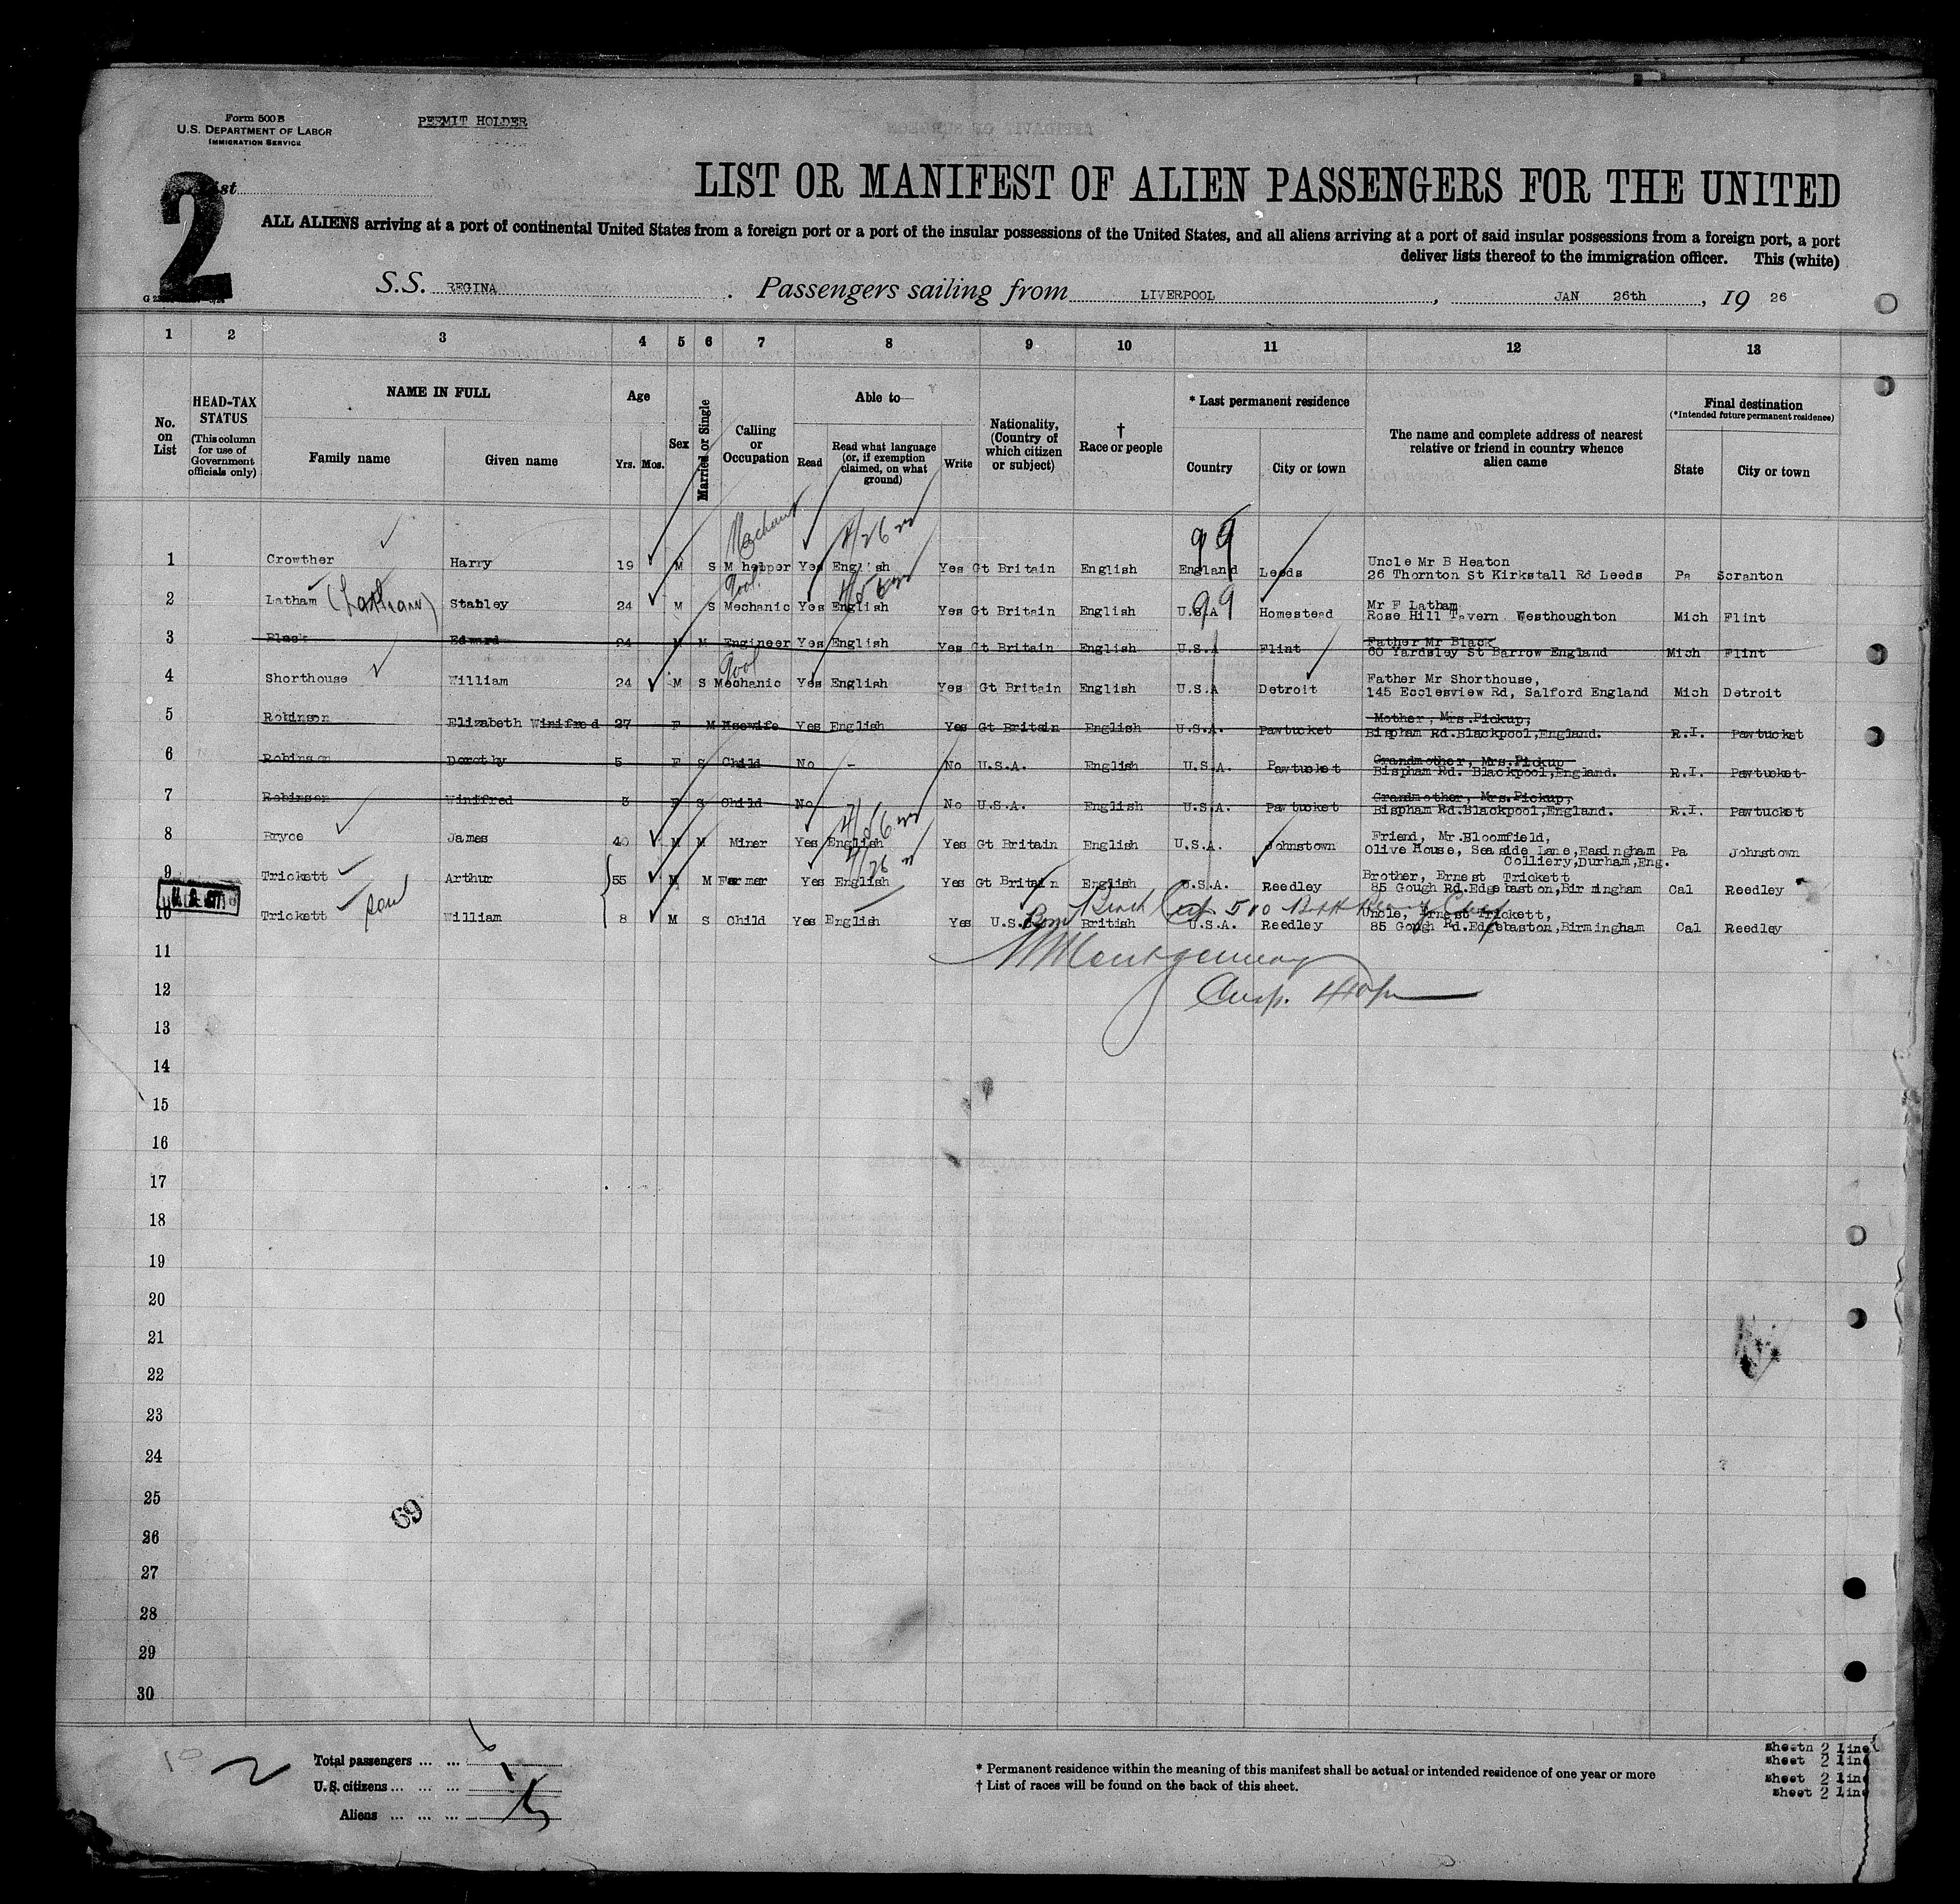 Form 500 B
U.S. DEPARTMENT OF LABOR
IMMIGRATION SERVICE
PERMIT HOLDER
2
List
LIST OR MANIFEST OF ALIEN PASSENGERS FOR THE UNITED
ALL ALIENS arriving at a port of continental United States from a foreign port or a port of the insular possessions of the United States, and all aliens arriving at a port of said insular possessions from a foreign port, a port
deliver lists thereof to the immigration officer. This (white)
S.S. REGINA. Passengers sailing from LIVERPOOL, JAN 26th, 19 26
1 2 3 4 5 6 7 8 9 10 11 12 13
No. on List
HEAD-TAX STATUS (This column for use of Government officials only)
NAME IN FULL
Family name
Given name
Age
Yrs. Mos.
Sex
Married or Single
Calling or Occupation
Able to—
Read
Read what language (or, if exemption claimed, on what ground)
Write
Nationality, (Country of which citizen or subject)
† Race or people
* Last permanent residence
Country
City or town
The name and complete address of nearest relative or friend in country whence alien came
Final destination
(*Intended future permanent residence)
State
City or town
1 Crowther Harry 19 M S M helper Yes English Yes Gt Britain English England Leeds Uncle Mr B Heaton 26 Thornton St Kirkstall Rd Leeds Pa Scranton
2 Latham (Latham) Stanley 24 M S Mechanic Yes English Yes Gt Britain English U.S.A Homestead Mr F Latham Rose Hill Tavern Westhoughton Mich Flint
3 Black Edward 24 M M Engineer Yes English Yes Gt Britain English U.S.A Flint Father Mr Black 60 Yardsley St Barrow England Mich Flint
4 Shorthouse William 24 M S Mechanic Yes English Yes Gt Britain English U.S.A Detroit Father Mr Shorthouse, 145 Ecclesview Rd, Salford England Mich Detroit
5 Robinson Elizabeth Winifred 27 F M Hsewife Yes English Yes Gt Britain English U.S.A. Pawtucket Mother, Mrs.Pickup, Bispham Rd.Blackpool,England. R.I. Pawtucket
6 Robinson Dorothy 5 F S Child No - No U.S.A. English U.S.A. Pawtucket Grandmother, Mrs.Pickup Bispham Rd. Blackpool,England. R.I. Pawtucket
7 Robinson Winifred 3 F S Child No No U.S.A. English U.S.A. Pawtucket Grandmother, Mrs.Pickup, Bispham Rd.Blackpool,England. R.I. Pawtucket
8 Bryce James 40 M M Miner Yes English Yes Gt Britain English U.S.A. Johnstown Friend, Mr.Bloomfield, Olive House, Seaside Lane,Easingham Colliery,Durham,Eng. Pa Johnstown
9 Trickett Arthur 55 M M Farmer Yes English Yes Gt Britain English U.S.A. Reedley Brother, Ernest Trickett 85 Gough Rd.Edgebaston,Birmingham Cal Reedley
10 Trickett son William 8 M S Child Yes English Yes U.S. Born British U.S.A. Reedley Uncle, Ernest Trickett, 85 Gough Rd.Edgebaston,Birmingham Cal Reedley
11
12
13
14
15
16
17
18
19
20
21
22
23
24
25
26
27
28
29
30
69
Total passengers ... ... 6
U.S. citizens ... ... ... 1
Aliens ... ... ... 5
* Permanent residence within the meaning of this manifest shall be actual or intended residence of one year or more
† List of races will be found on the back of this sheet.
sheetn 2 line
sheet 2 line
sheet 2 line
sheet 2 line